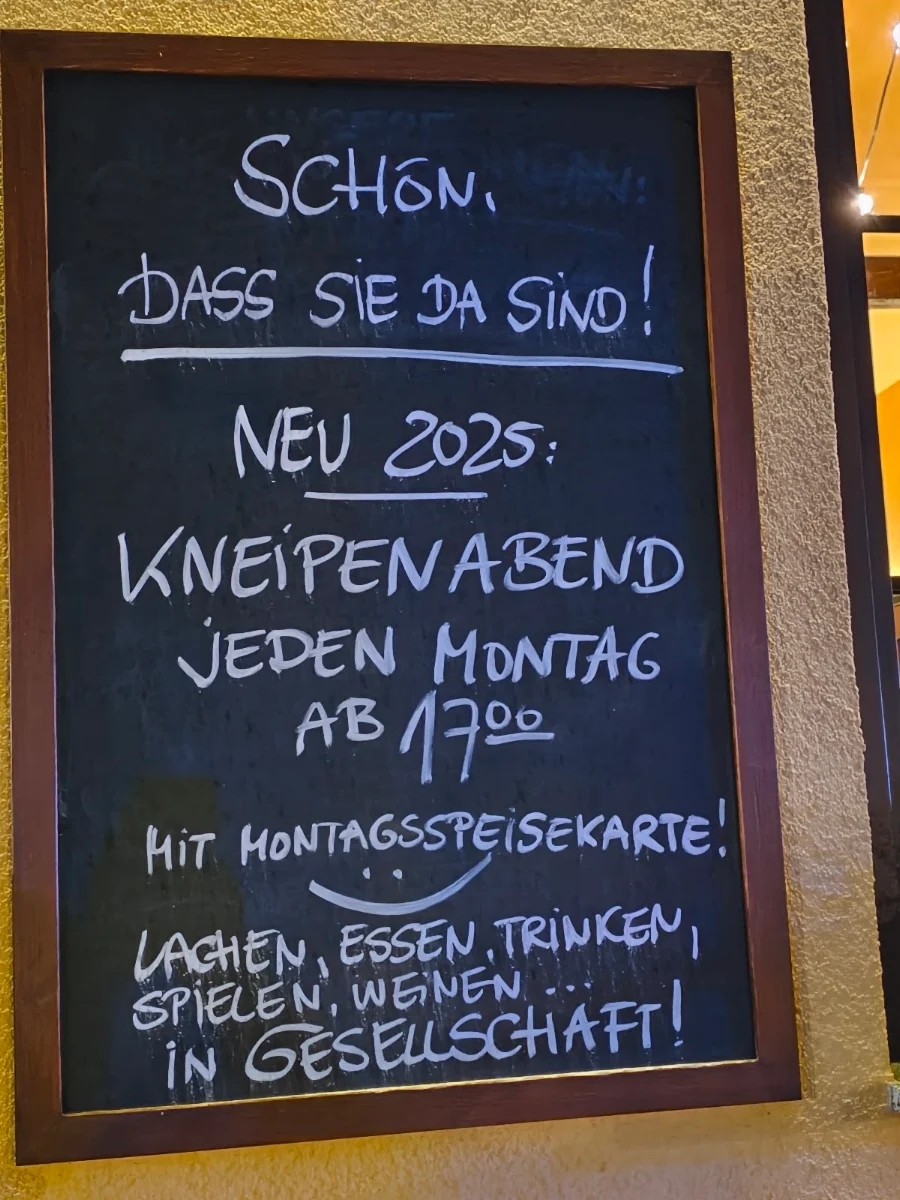 SCHÖN,
DASS SIE DA SIND!
NEU 2025:
KNEIPENABEND
JEDEN MONTAG
AB 17⁰⁰
MIT MONTAGSSPEISEKARTE!
LACHEN, ESSEN, TRINKEN,
SPIELEN, WEINEN ...
IN GESELLSCHAFT!